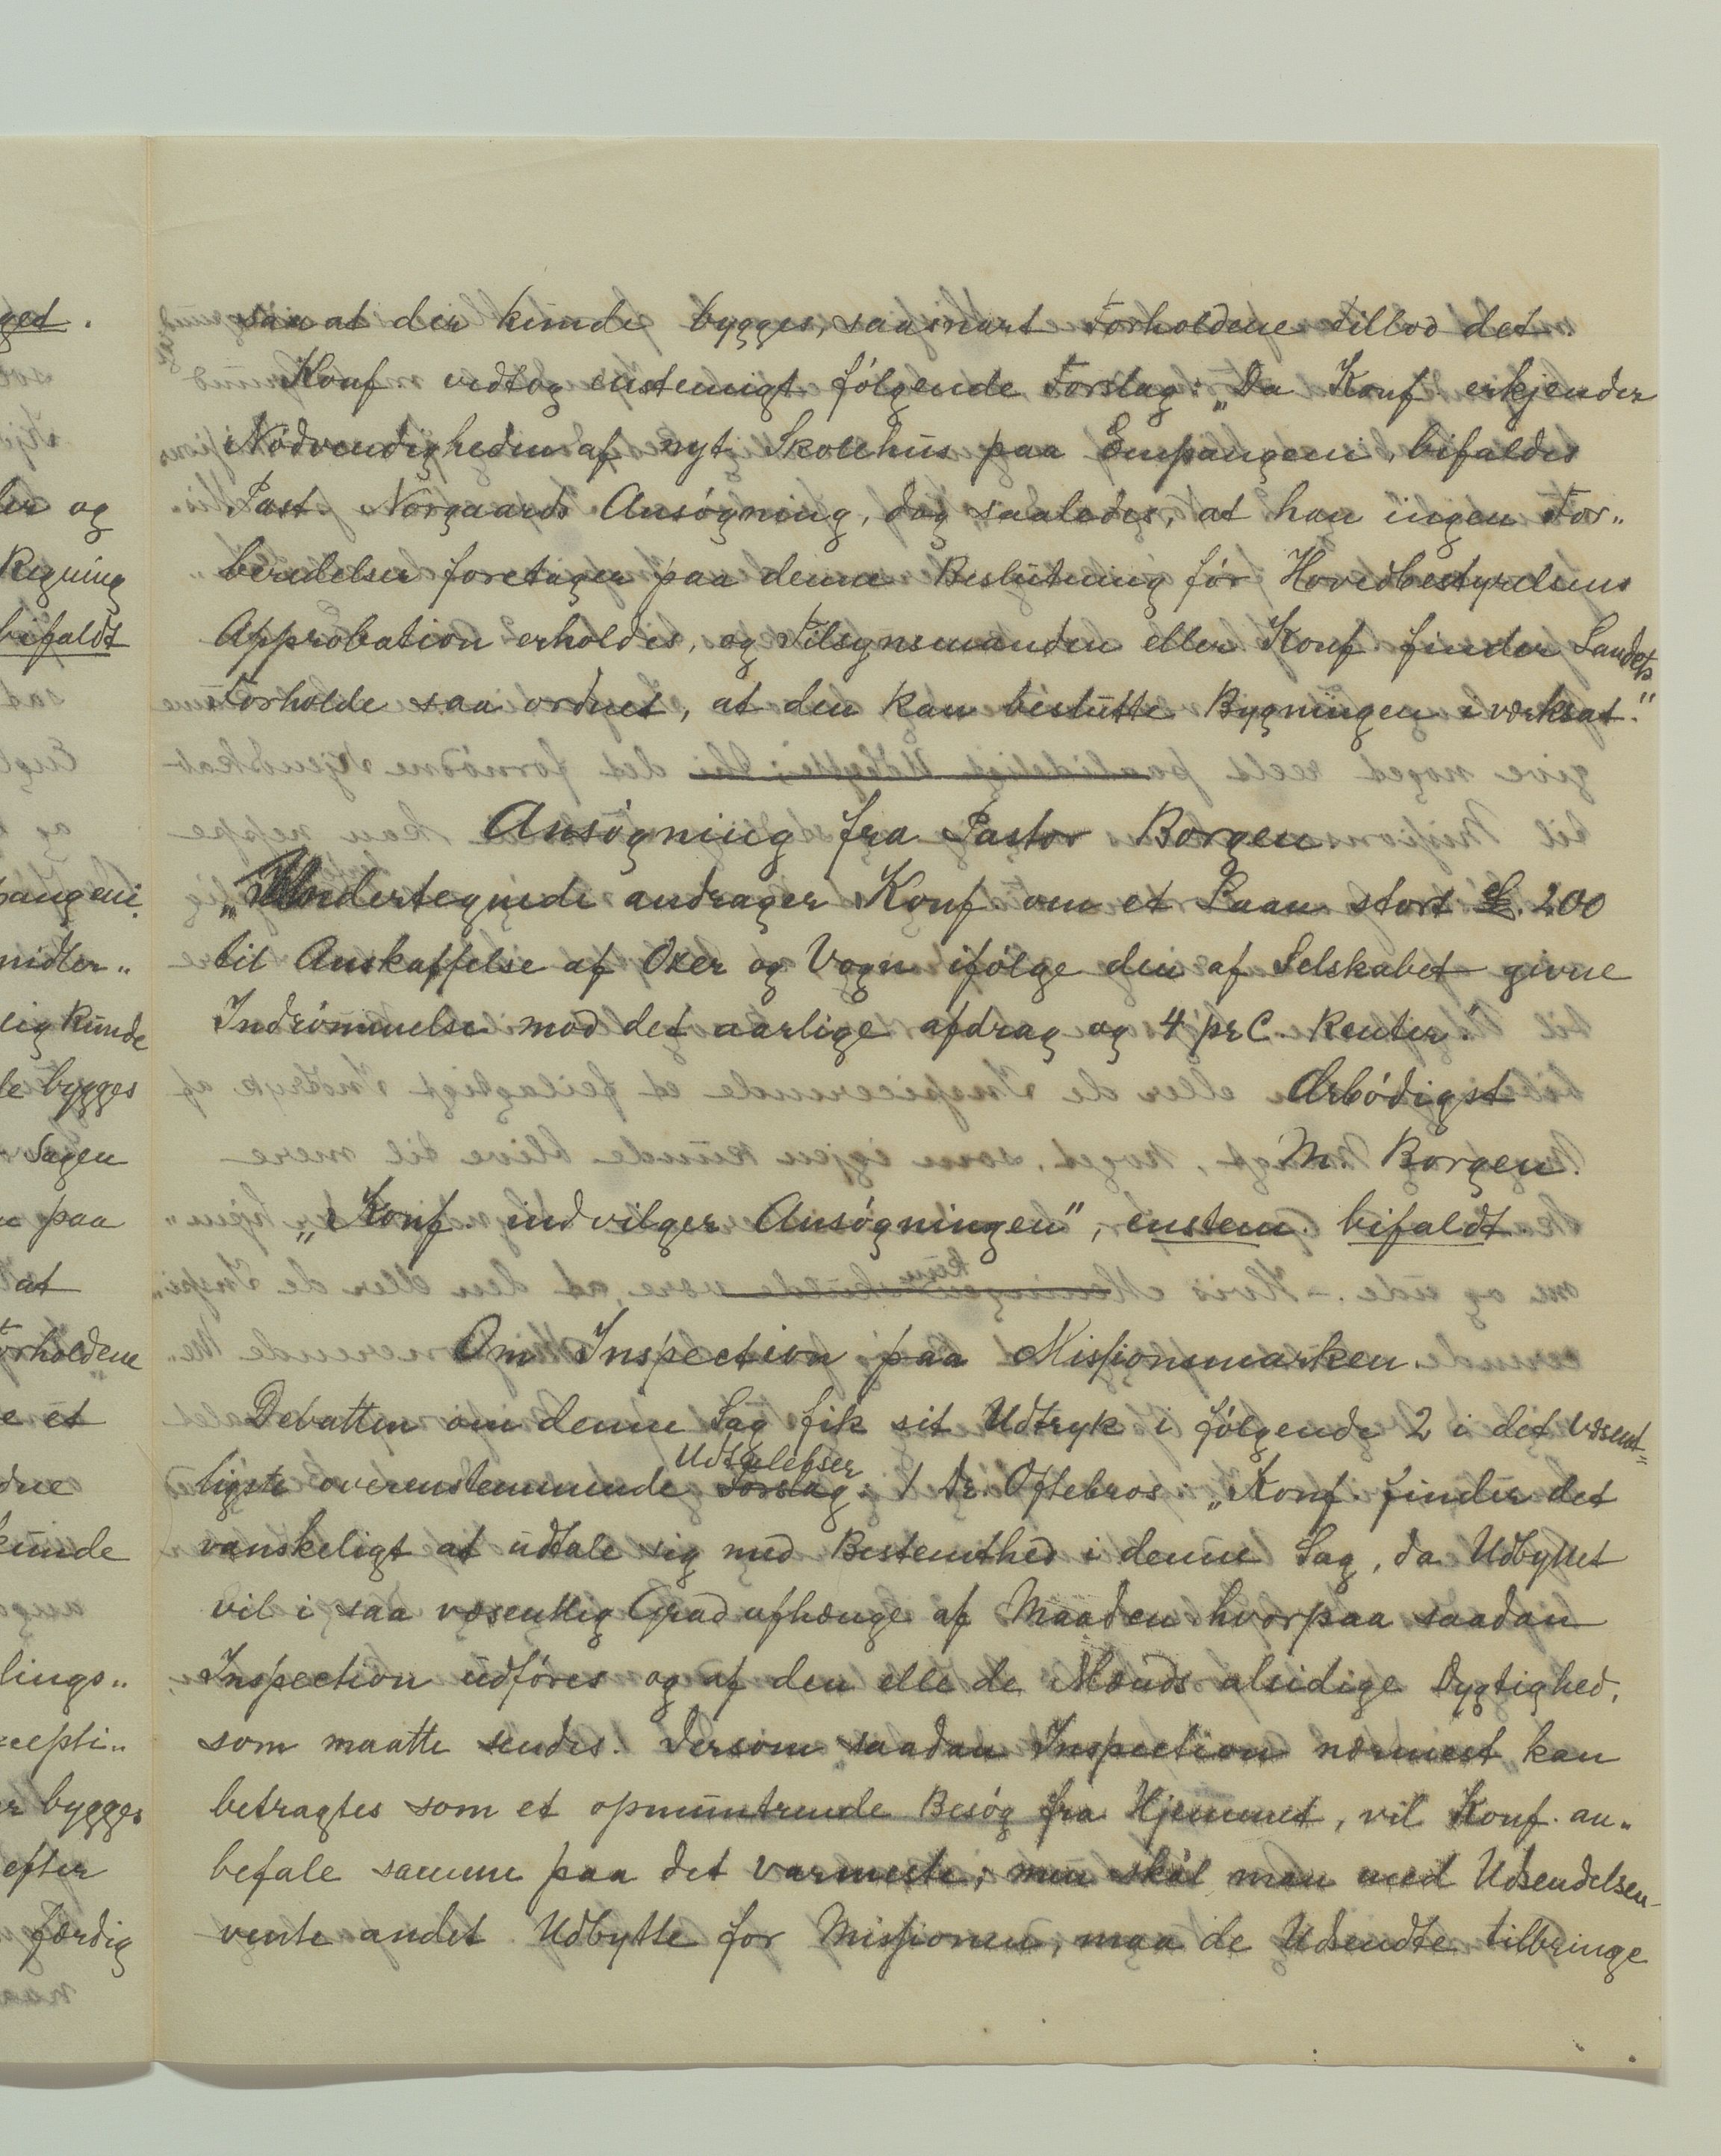 saa at der kunde bygges, saasnart Forholdene tillod det.
Konf vedtog enstemigt følgende Forslag: „Da Konf erkjender
Nødvendigheden af nyt Skolehus paa Empangeni, bifaldes
Past. Norgaards Ansøgning, dog saaledes, at han ingen For„
beredelser foretager paa denne Beslutning før Hovedbestyrelsens
Approbation erholdes, og Tilsynsmanden eller Konf finder Landets
Forholde saa ordnet, at den kan beslutte Bygningen iværksat."
Ansøgning fra Pastor Borgen
„Undertegnede andrager Konf om et Laan stort £. 200
til Anskaffelse af Oxer og Vogn ifølge den af Selskabet givne
Indrømmelse mod det aarlige afdrag og 4 prC. Renter."
Ærbødigst
M. Borgen.
„Konf. indvilger Ansøgningen", enstem. bifaldt.
Om Inspection paa Missionsmarken.
Debatten om denne Sag fik sit Udtryk i følgende 2 i det væsent=
ligste overenstemmende Forslag Udtalelser: 1 Dr. Oftebros „Konf. finder det
vanskeligt at udtale sig med Bestemthed i denne Sag, da Udbyttet
vil i saa væsentlig Grad afhænge af Maaden hvorpaa saadan
Inspection udføres og af den elle de Mænds alsidige Dygtighed,
som maatte sendes. Dersom saadan Inspection nærmest kan
betragtes som et opmuntrende Besøg fra Hjemmet, vil Konf. an„
befale samme paa det varmeste; men skal man med Udsendelsen
vente andet Udbytte for Missionen, maa de Udsendte tilbringe
get.
og
Regning
bifaldt
pangeni.
midler„
lig kunde
bygges
Sagen
paa
at
orholdene
et
kunde
lings„
cepti„
bygges
efter
færdig